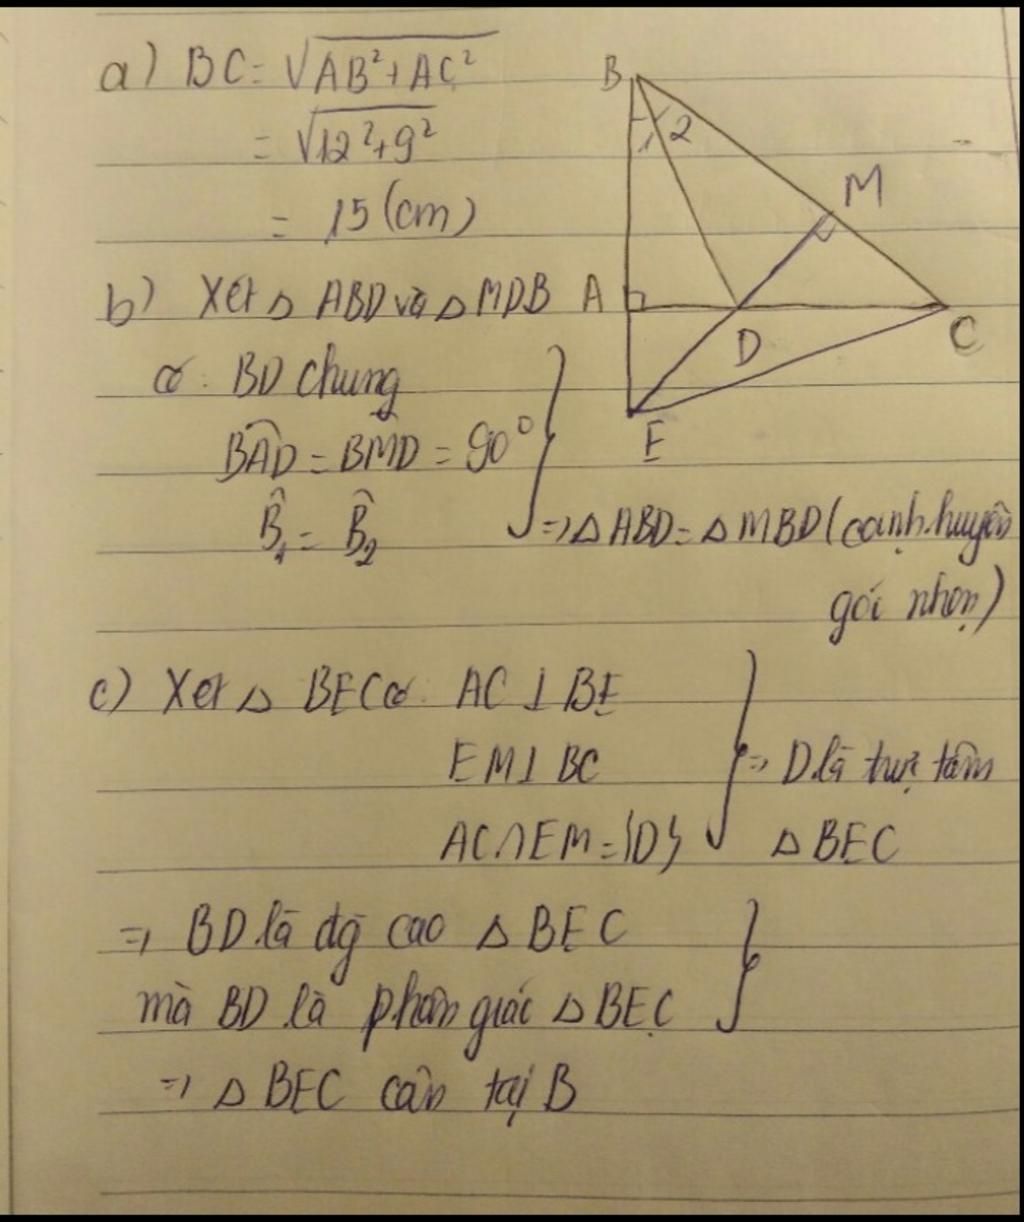 a) BC = √AB² + AC²
= √12² + 9²
= 15 (cm)
b) Xét Δ ABD và Δ MDB
có: BD chung
BAD = BMD = 90°
B̂₁ = B̂₂
=> Δ ABD = Δ MBD (cạnh.huyền
gói nhọn)
c) Xét Δ BEC có: AC ⊥ BE
EM ⊥ BC
AC ∩ EM = {D}
=> D là trực tâm
Δ BEC
=> BD là đg cao Δ BEC
mà BD là phân giác Δ BEC
=> Δ BEC cân tại B
B
1 2
M
A
D
C
E